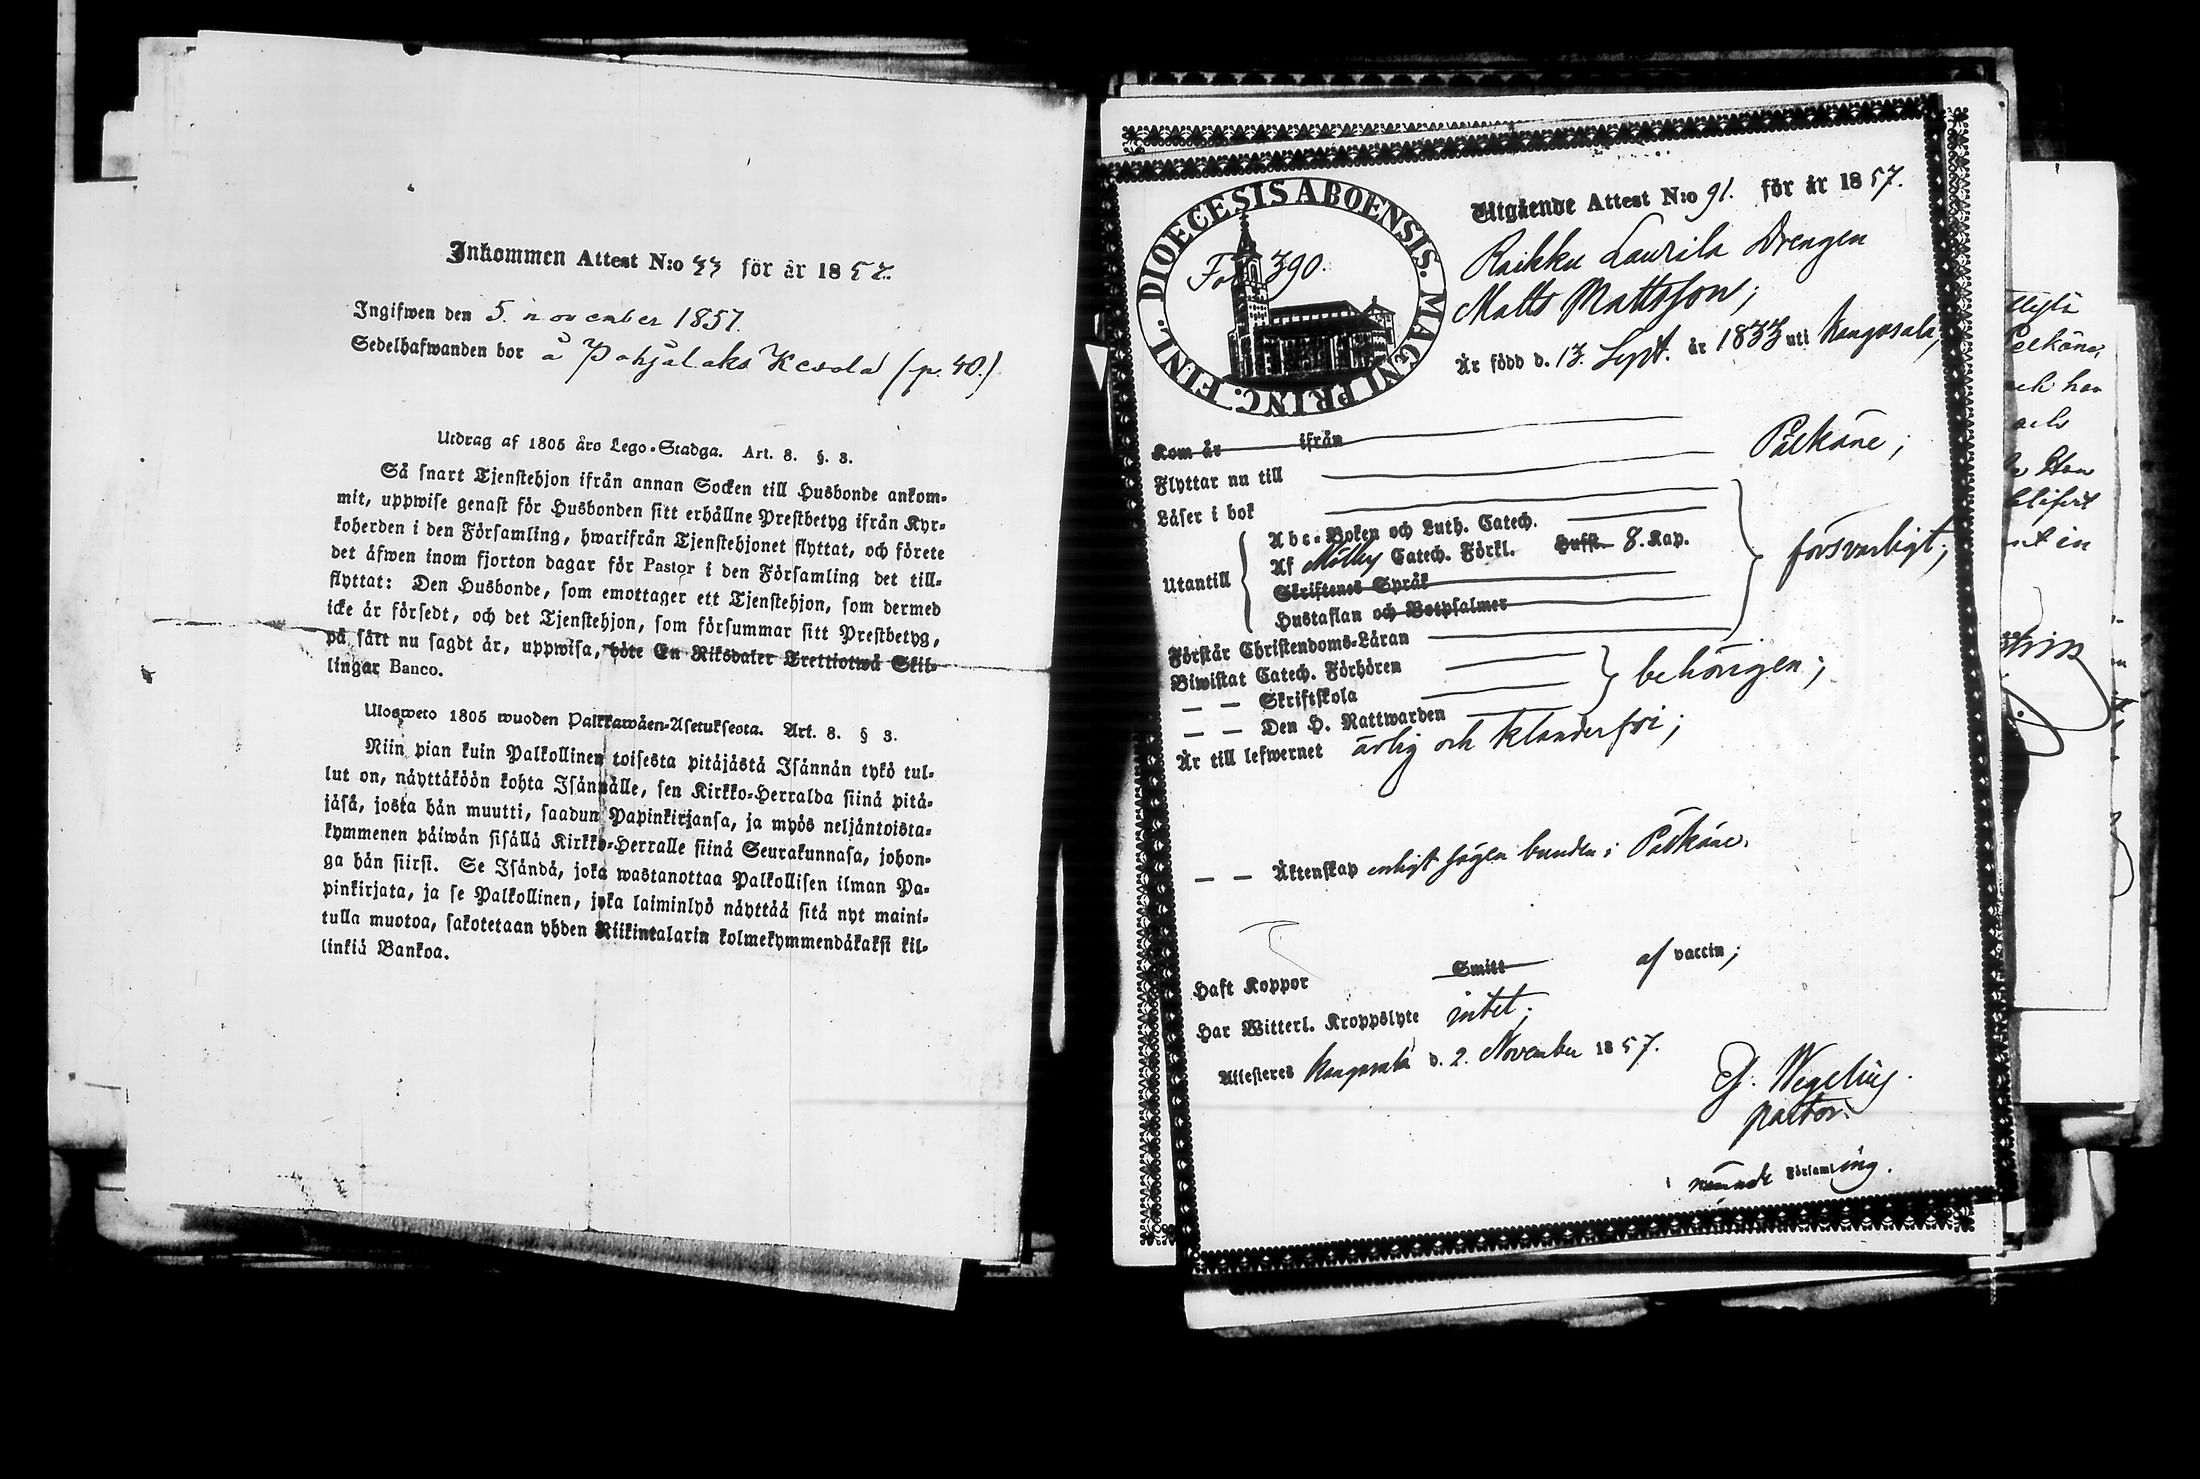 Inkommen Attest N:o 33 för år 1857.
Ingifwen den 5. november 1857.
Sedelhafwanden bor å Pohjalaks Kesola (p. 40.)
Utdrag af 1805 års Lego-Stadga. Art. 8. §. 3.
Så snart Tjenstehjon ifrån annan Socken till Husbonde ankom-
mit, uppwise genast för Husbonden sitt erhållne Prestbetyg ifrån Kyr-
koherden i den Församling, hwarifrån Tjenstehjonet flyttat, och förete
det äfwen inom fjorton dagar för Pastor i den Församling det till-
flyttat: Den Husbonde, som emottager ett Tjenstehjon, som dermed
icke är försedt, och det Tjenstehjon, som försummar sitt Prestbetyg,
på sätt nu sagdt är, uppwisa, böte En Riksdaler Trettiotwå Skil-
lingar Banco.
Ulosweto 1805 wuoden Palkkawäen-Asetuksesta. Art. 8. § 3.
Niin pian kuin Palkollinen toisesta pitäjästä Isännän tykö tul-
lut on, näyttäköön kohta Isännälle, sen Kirkko-Herralda siinä pitä-
jäsä, josta hän muutti, saadun Papinkirjansa, ja myös neljäntoista-
kymmenen päiwän sisällä Kirkko-Herralle siinä Seurakunnasa, johon-
ga hän siirsi. Se Isändä, joka wastanottaa Palkollisen ilman Pa-
pinkirjata, ja se Palkollinen, joka laiminlyö näyttää sitä nyt maini-
tulla muotoa, sakotetaan yhden Riikintalarin kolmekymmendäkaksi kil-
linkiä Bankoa.
DIOECESIS ABOENSIS. MAGNI PRINC. FINL.
Fol 390.
Utgående Attest N:o 91. för år 1857.
Raikku Laurila Drengen
Matts Mattsson;
Är född d. 13. Sept. år 1833 uti Kangasala,
Kom år ifrån
Flyttar nu till Pälkäne;
Läser i bok
Utantill
Abc-Boken och Luth. Catech.
Af Möllers Catech. Förkl. Hufst. 8. Kap.
Skriftenes Språk
Hustaflan och Botpsalmer
försvarligt;
Förstår Christendoms-Läran
Biwistat Catech. Förhören
— — Skriftskola
— — Den H. Nattwarden
behörigen;
Är till lefwernet ärlig och klanderfri;
— — Äktenskap enligt sägen bunden i Pälkäne.
Haft Koppor Smitt af vaccin;
Har Witterl. Kroppslyte intet;
Attesteres Kangasala d. 2. November 1857.
G. Wegelius.
pastor.
i nämnde Församling.